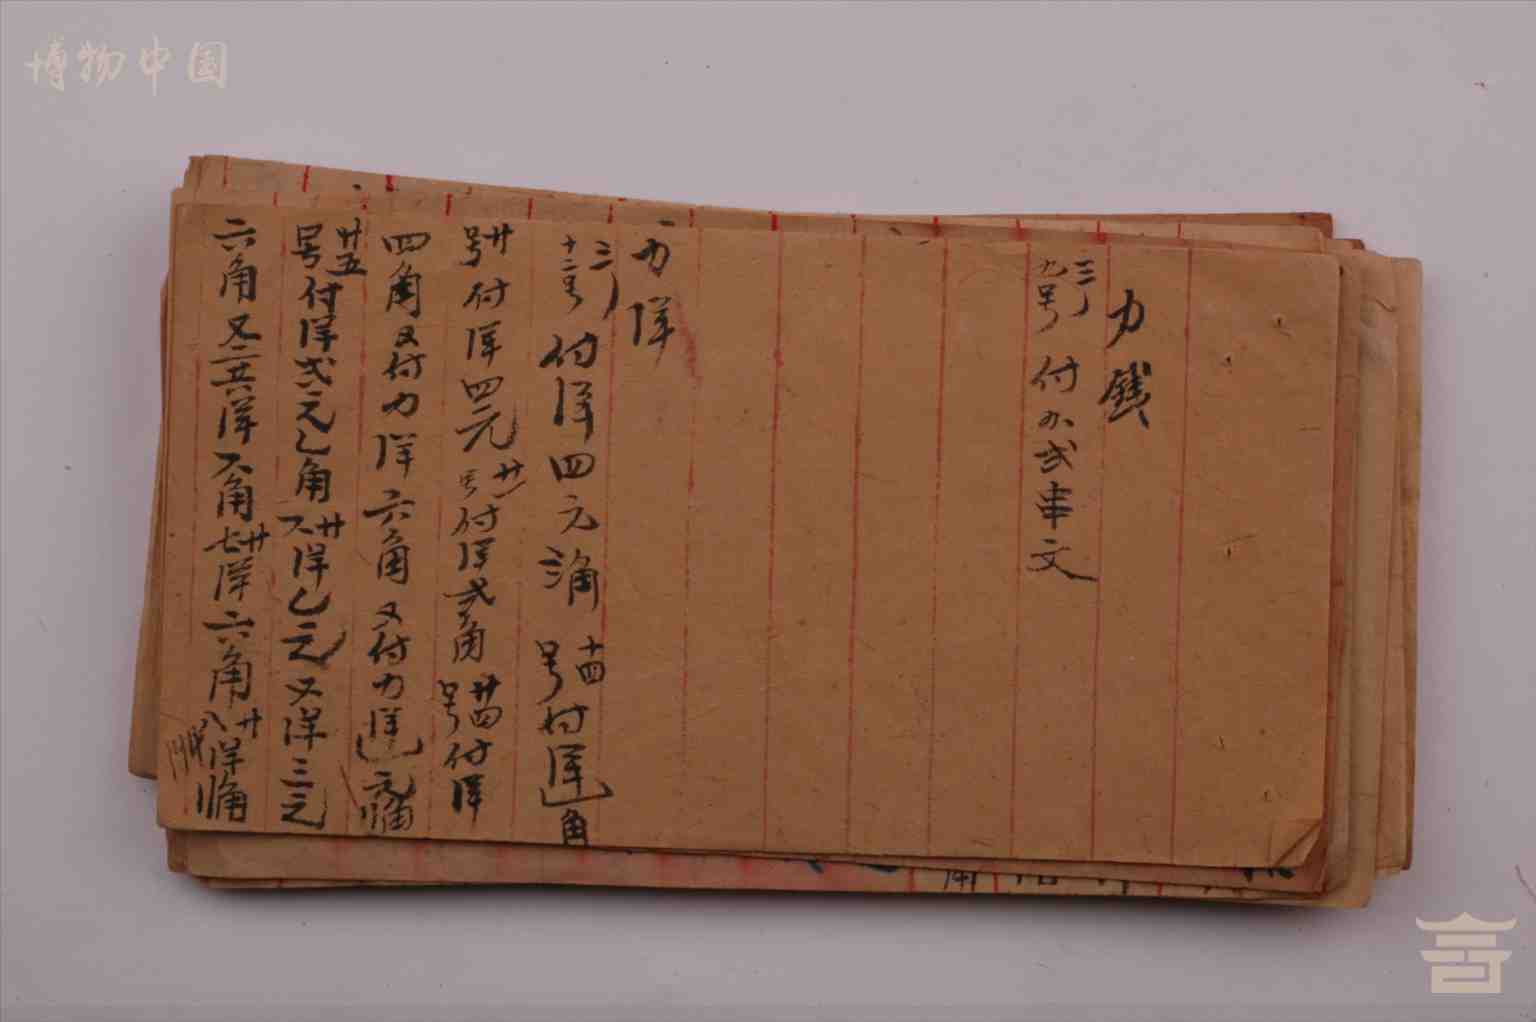 博物中国
力錢
三月九号 付 弍串文
力洋
三月十二号 付洋四元 角 十四号付洋 角
廿号付洋四元 廿一号付洋弍角 廿四号付洋
四角又付力洋六角又付力洋 元 角
廿五号付洋弍元乙角 廿六洋乙元又洋三元
六角又 洋六角廿七洋六角廿八洋 角